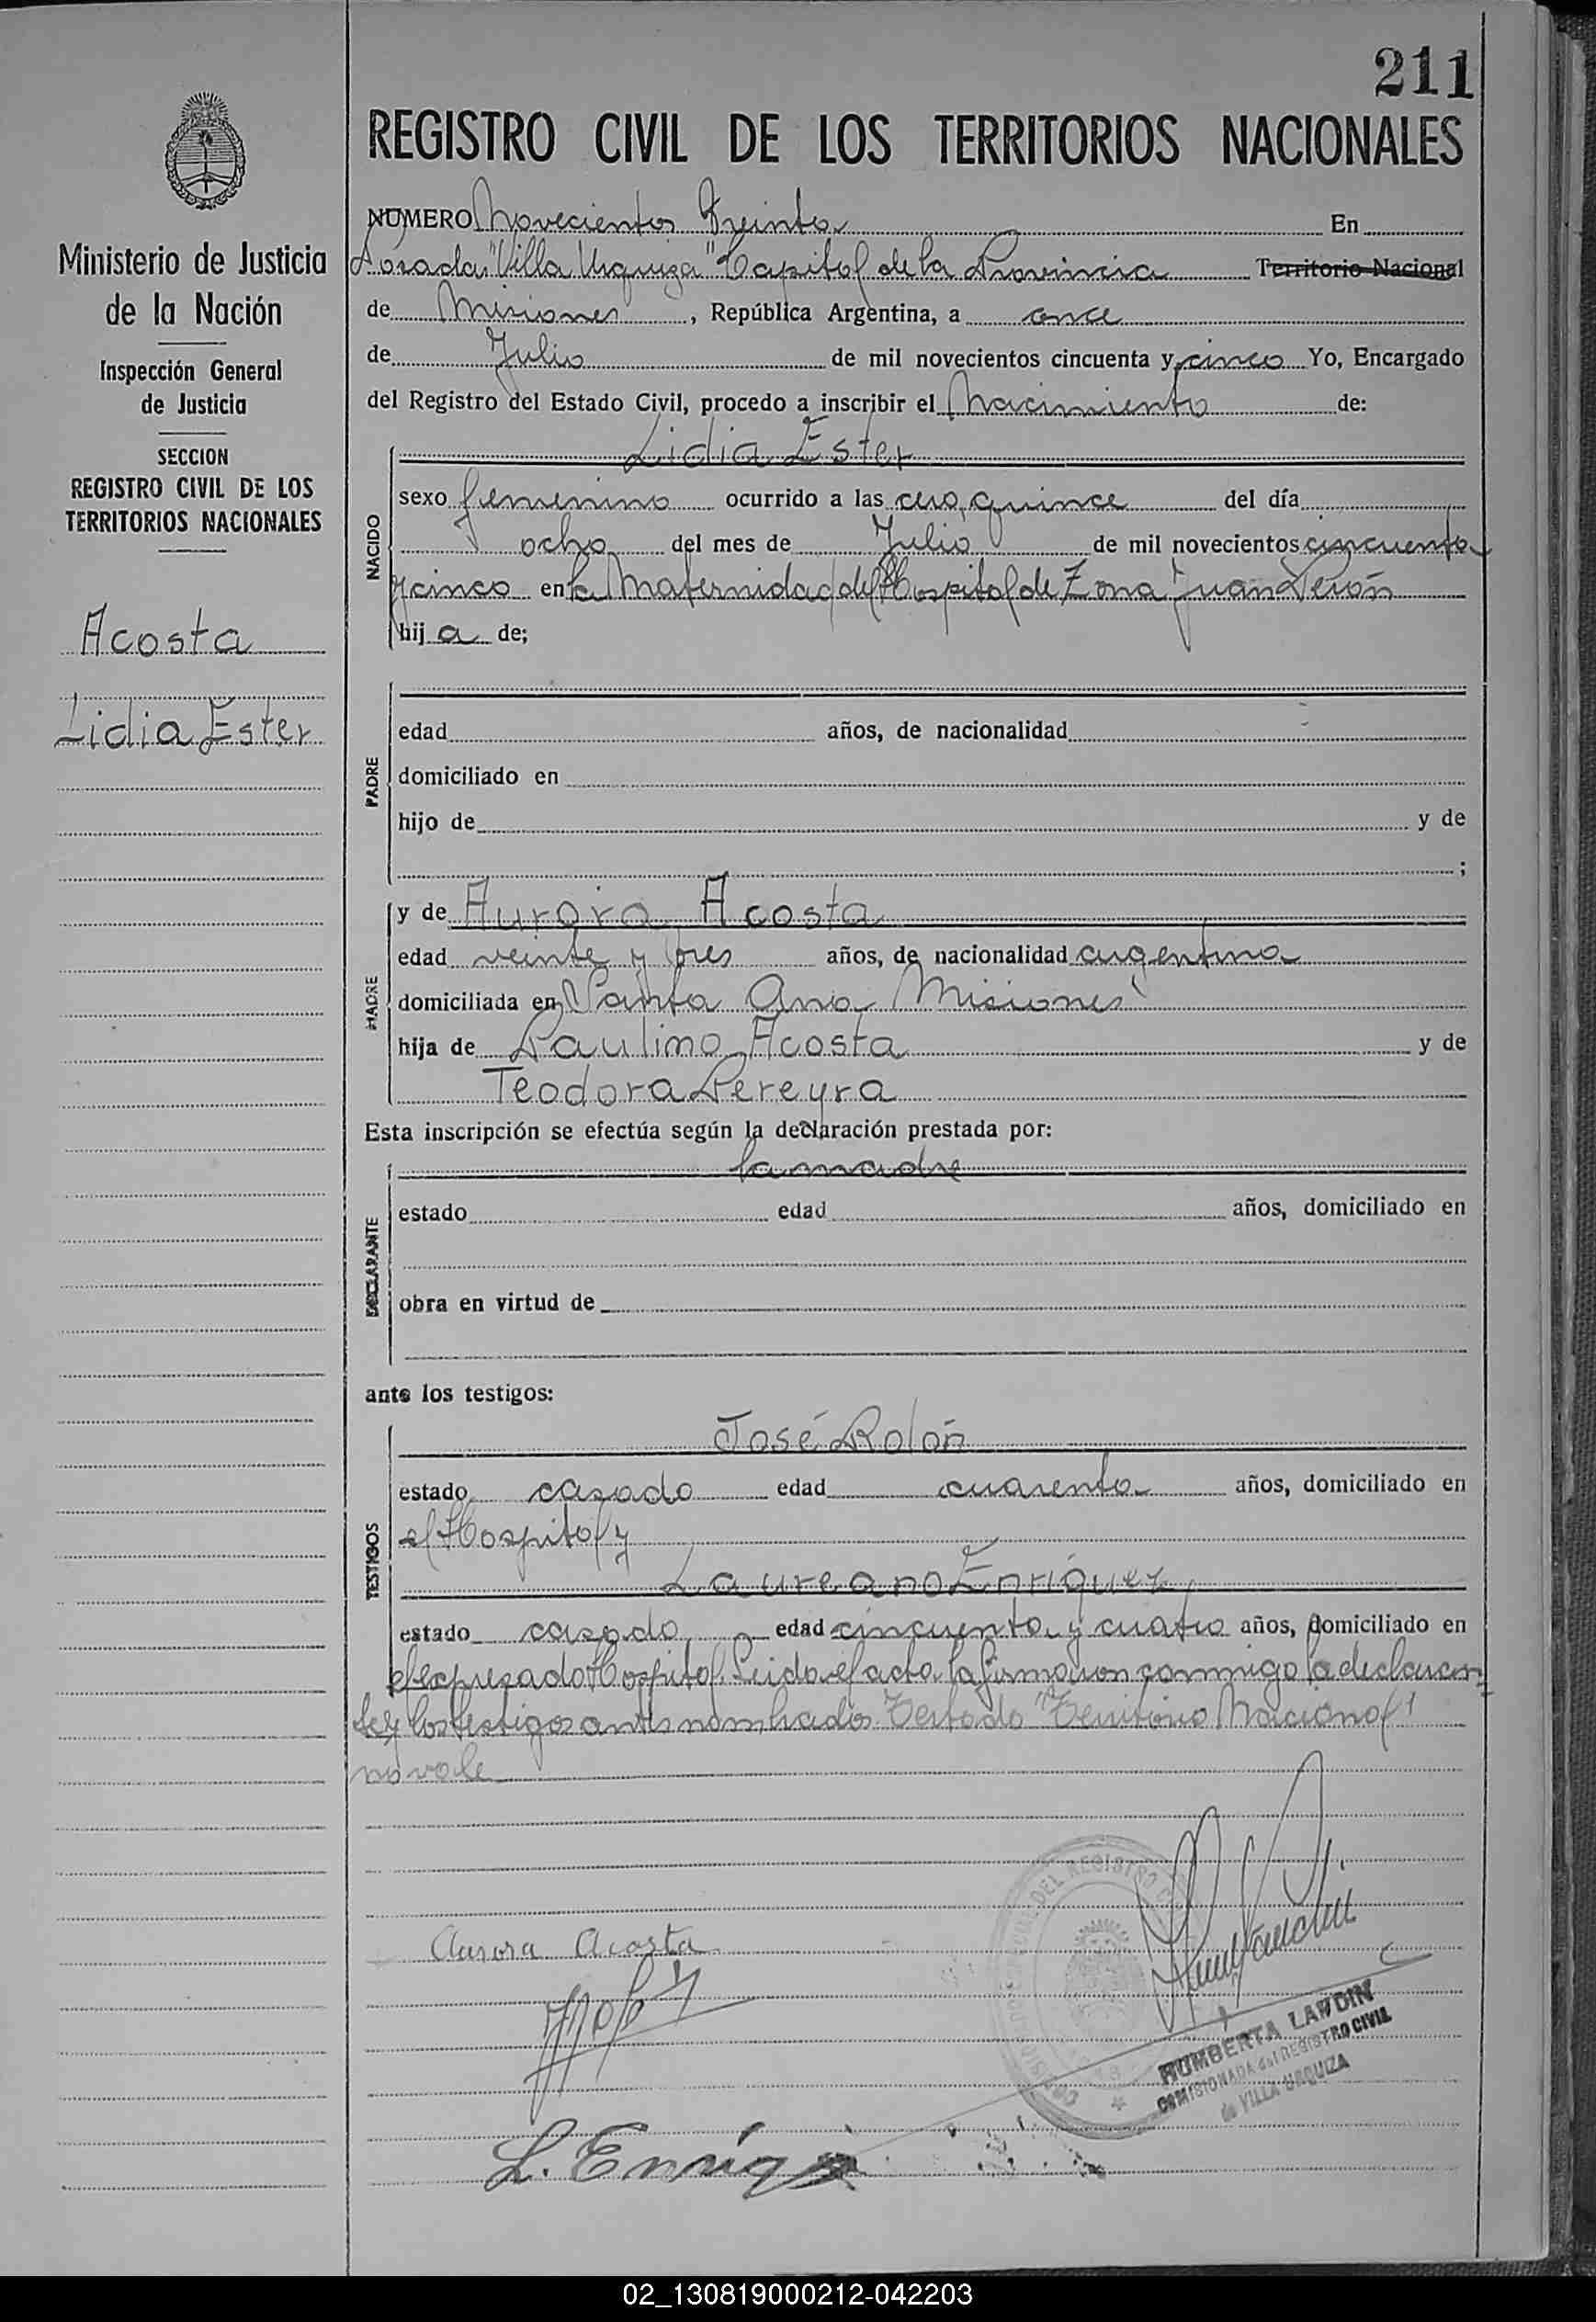 211
REGISTRO CIVIL DE LOS TERRITORIOS NACIONALES
Ministerio de Justicia
de la Nación
Inspección General
de Justicia
SECCION
REGISTRO CIVIL DE LOS
TERRITORIOS NACIONALES
Acosta
Lidia Ester
NUMERO Novecientos Treinta En
Posadas "Villa Urquiza" Capital de la Provincia Territorio Nacional
de Misiones, República Argentina, a once
de Julio de mil novecientos cincuenta y cinco Yo, Encargado
del Registro del Estado Civil, procedo a inscribir el Nacimiento de:
NACIDO
Lidia Ester
sexo femenino ocurrido a las cero, quince del día
ocho del mes de Julio de mil novecientos cincuenta
y cinco en la Maternidad del Hospital de Zona Juan Perón
hija de;
PADRE
edad años, de nacionalidad
domiciliado en
hijo de y de
;
MADRE
y de Aurora Acosta
edad veinte y tres años, de nacionalidad argentina
domiciliada en Santa Ana Misiones
hija de Paulino Acosta y de
Teodora Pereyra
Esta inscripción se efectúa según la declaración prestada por:
DECLARANTE
la madre
estado edad años, domiciliado en
obra en virtud de
ante los testigos:
TESTIGOS
José Rolón
estado casado edad cuarenta años, domiciliado en
el Hospital y
Laureano Enriquez
estado casado, edad cincuenta y cuatro años, domiciliado en
el expresado Hospital. Leida el acta la firmaron conmigo la declaran=
te y los testigos antes nombrados. Testado "Territorio Nacional"
no vale
Aurora Acosta
L. Enriq
DEL REGISTRO
HUMBERTA LANDIN
COMISIONADA del REGISTRO CIVIL
de VILLA URQUIZA
02_130819000212-042203